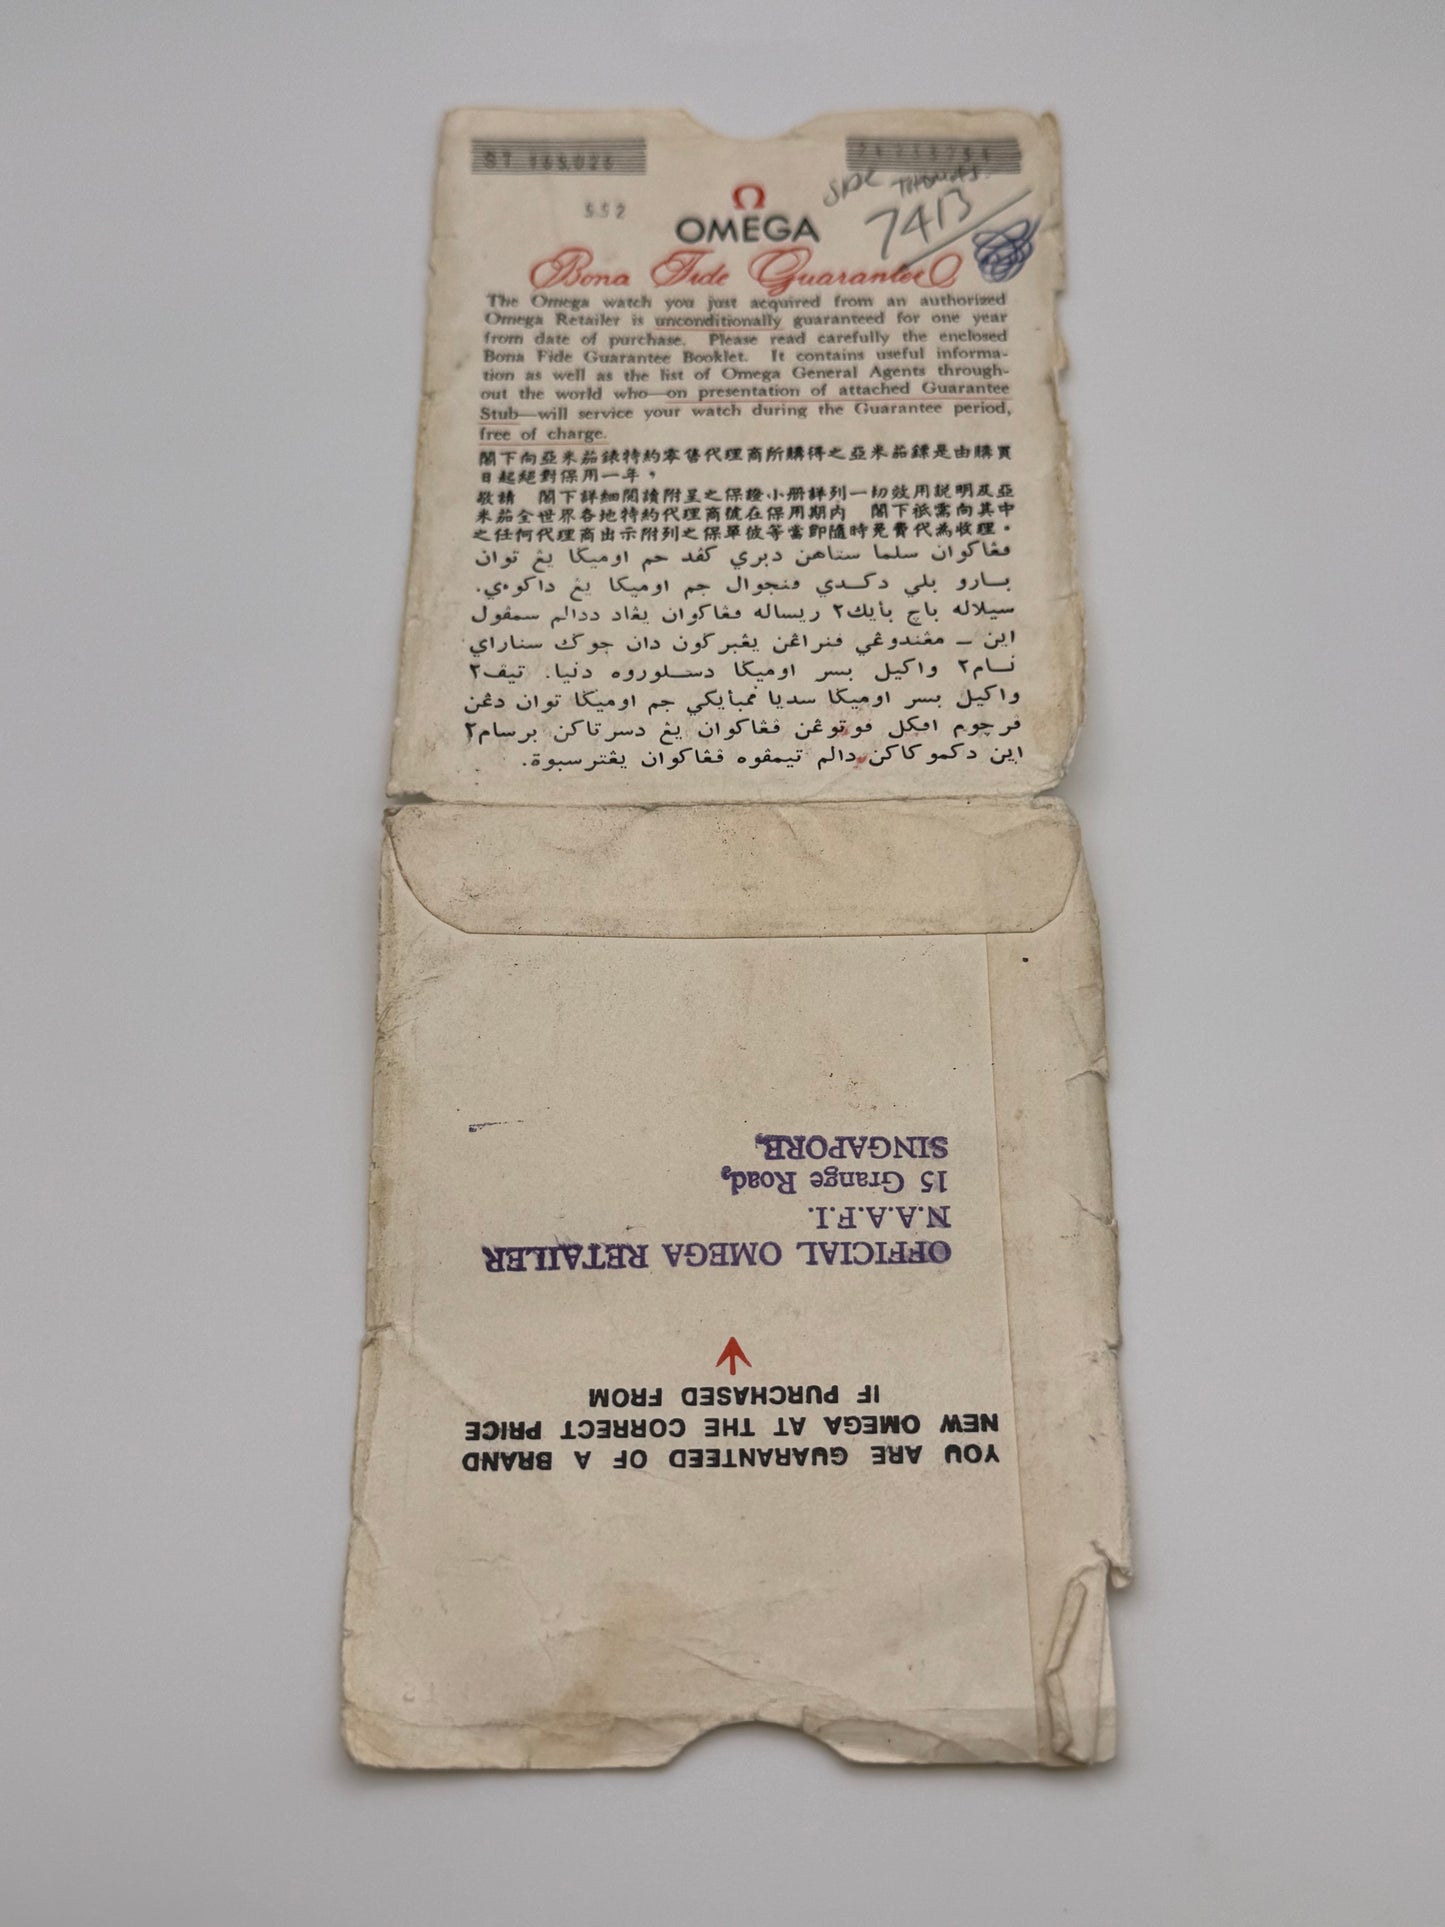 ST 165.026
552
OMEGA
7413
Bona Fide Guarantee
The Omega watch you just acquired from an authorized
Omega Retailer is unconditionally guaranteed for one year
from date of purchase. Please read carefully the enclosed
Bona Fide Guarantee Booklet. It contains useful informa-
tion as well as the list of Omega General Agents through-
out the world who—on presentation of attached Guarantee
Stub—will service your watch during the Guarantee period,
free of charge.
閣下向亞米茄錶特約零售代理商所購得之亞米茄鏢是由購買
日起絕對保用一年。
敬請 閣下詳細閱讀附呈之保證小册詳列一切效用説明及亞
米茄全世界各地特約代理商號在保用期内 閣下祇需向其中
之任何代理商出示附列之保單彼等當即隨時免費代為收理。
فڠاکوان سلما ستاهن دبري کفد جم اوميݢا يڠ توان
بارو بلي دکدي فنجوال جم اوميݢا يڠ داکوءي.
سيلاله باچ بأيك٢ ريساله فڠاکوان يڠاد ددالم سمڤول
اين ــ مڠندوڠي فنراڠن يڠبرݢون دان جوݢ سناراي
نام٢ واکيل بسر اوميݢا دسلوروه دنيا. تيڤ٢
واکيل بسر اوميݢا سديا ممبأيکي جم اوميݢا توان دڠن
فرچوم افبل فوتوڠن فڠاکوان يڠ دسرتاکن برسام٢
اين دکموکاکن دالم تيمڤوه فڠاکوان يڠترسبوة.
YOU ARE GUARANTEED OF A BRAND
NEW OMEGA AT THE CORRECT PRICE
IF PURCHASED FROM
OFFICIAL OMEGA RETAILER
N.A.A.F.I.
15 Grange Road,
SINGAPORE.